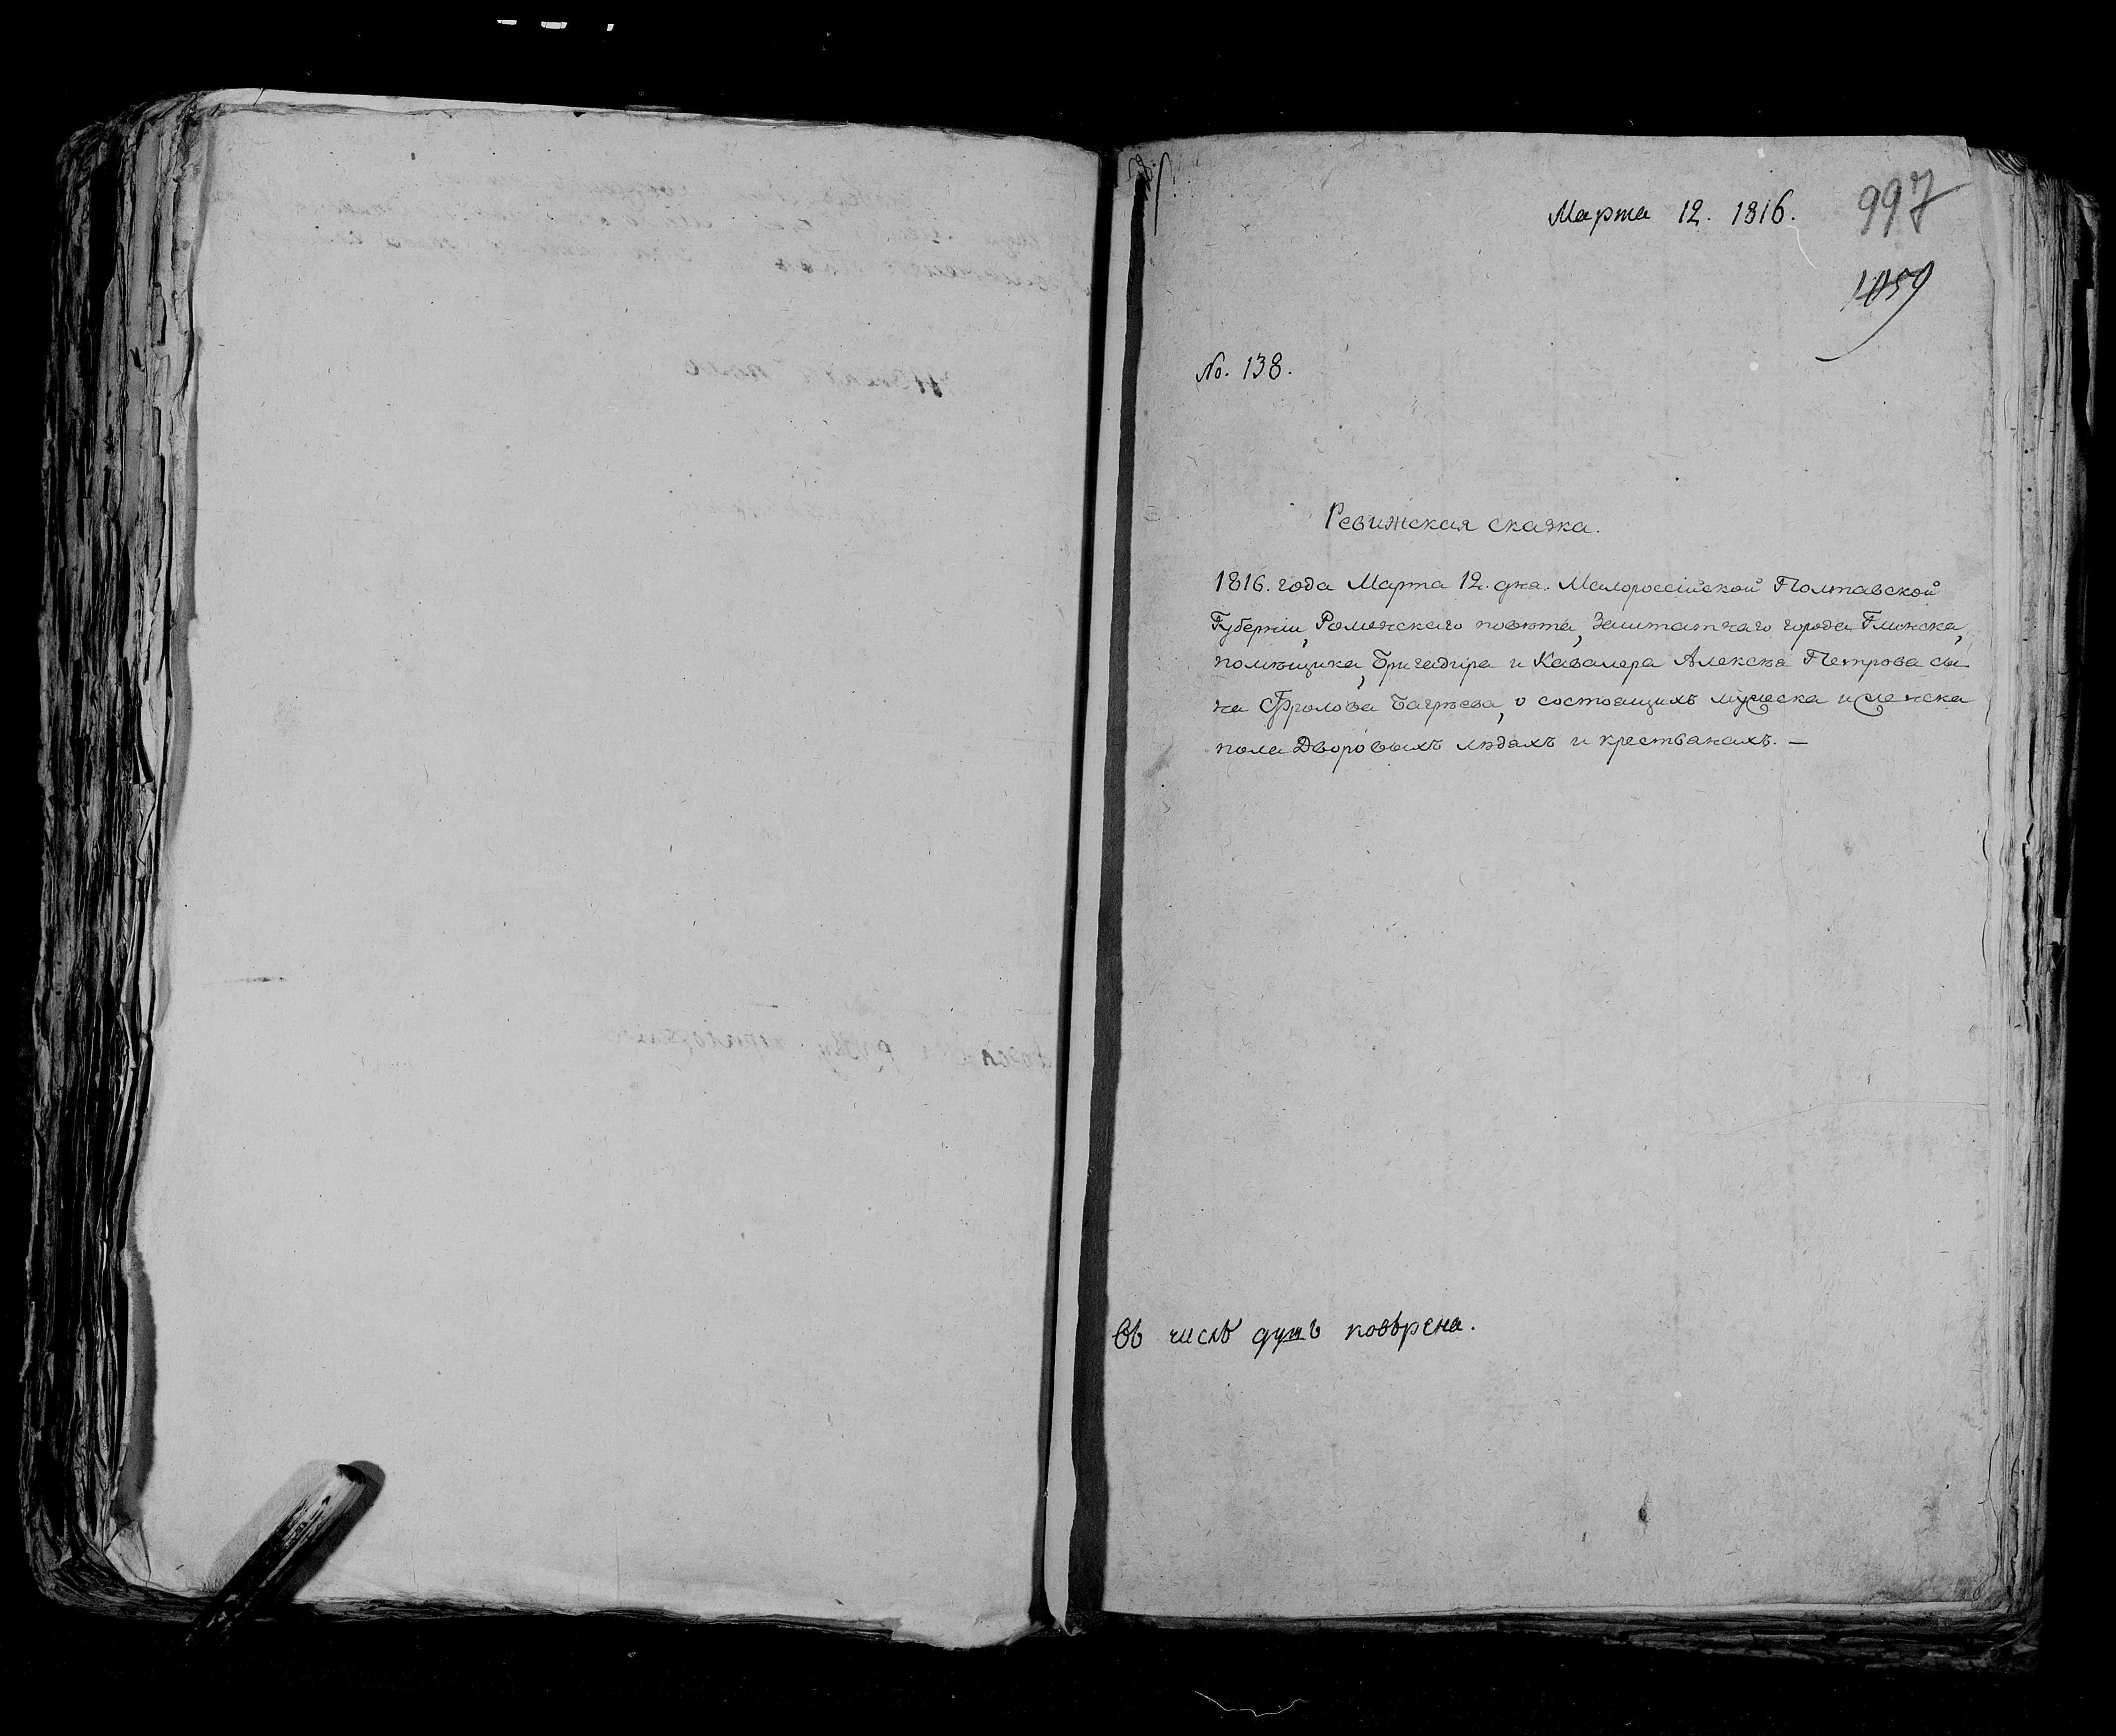 Марта 12. 1816.
997
1059
No. 138.
Ревижская сказка.
1816. года Марта 12. дня. Малороссійской Полтавской
Губерніи, Роменскаго повѣта, Заштатнаго города Глинска,
помѣщика, Бригадира и Кавалера Алексѣя Петрова сы
на Фролова Багрѣева, о состоящихъ мужеска и женска
пола Дворовыхъ людяхъ и крестьянахъ. —
Въ числѣ душъ повѣрена.